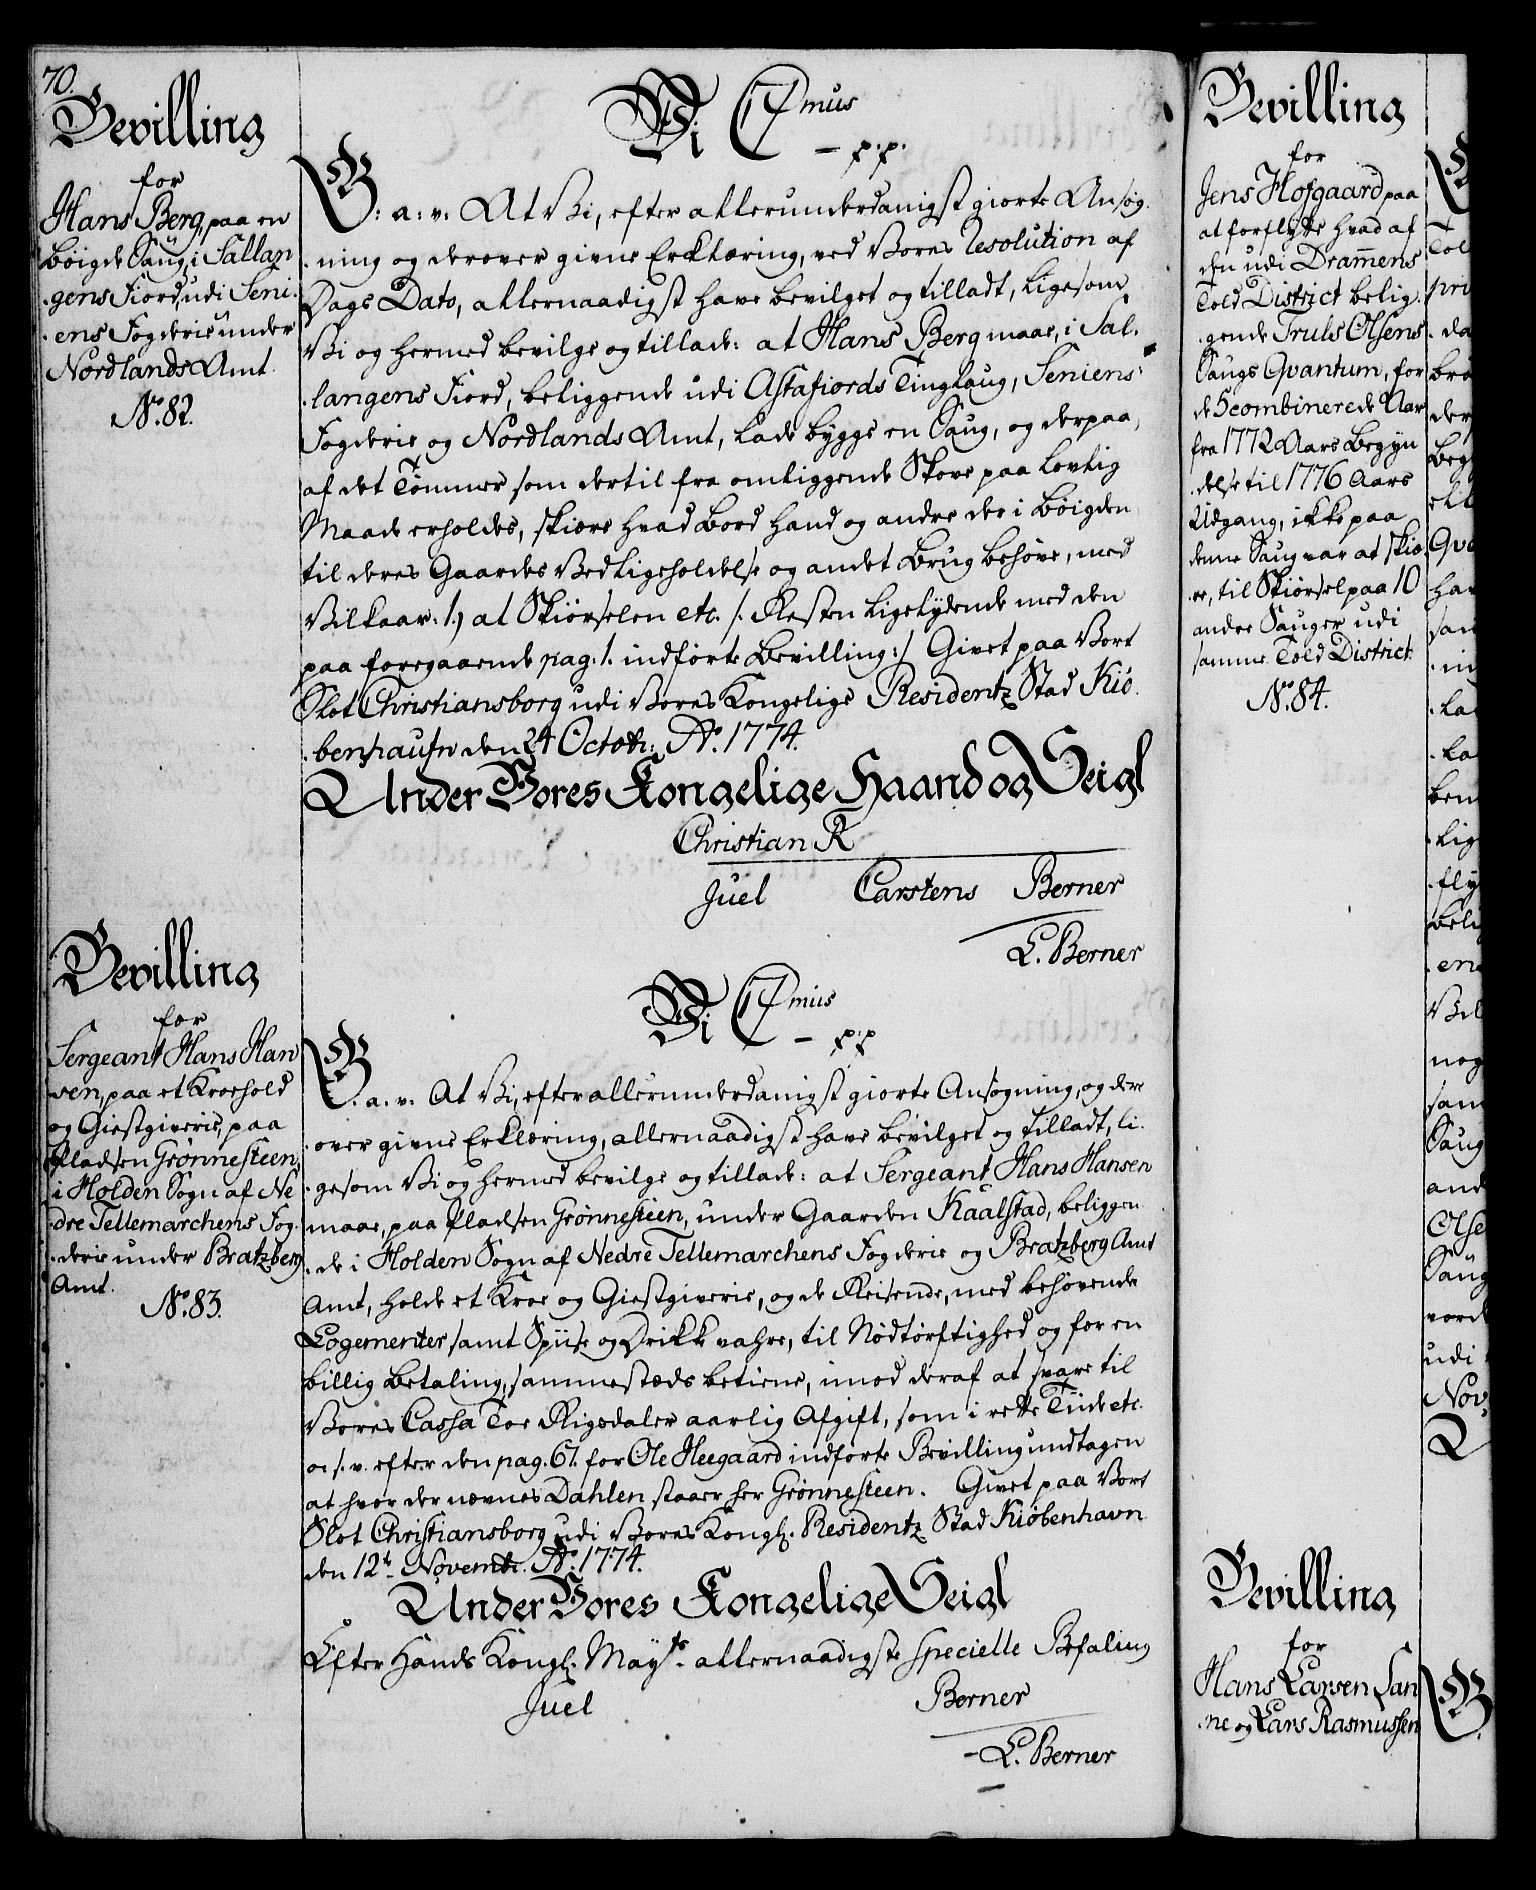 70.
Bevilling
for
Hans Berg, paa en
bøigde Saug, i Sallan
gens Fiord, udi Seni
ens Fogderie under
Nordlands Amt.
No. 82.
Vi C 7mus
p.p.
G: a: v: At Vi, efter allerunderdanigst giorte Ansøg
ning og derover givne Erklæring, ved Vores Resolution af
Dags Dato, allernaadigst have bevilget og tilladt, ligesom
Vi og hermed bevilge og tillade: at Hans Berg maae, i Sal
langens Fiord, beliggende udi Astafiords Tinglaug, Seniens
Fogderie og Nordlands Amt, lade bygge en Saug, og derpaa,
af det Tømmer som dertil fra omliggende Skove paa lovlig
Maade erholdes, skiære hvad Bord hand og andre der i Bøigden
til deres Gaardes Vedligeholdelse og andet Brug behøve, med
Vilkaar: 1.) at Skiørselen etc. /: Resten ligelydende med den
paa foregaaende pag. 1. indførte Bevilling:/ Givet paa Vort
Slot Christiansborg udi Vores Kongelige Residentz Stad Kiø
benhaufn den 24 Octobr: Ao. 1774.
Under Vores Kongelige Haand og Seigl
Christian R
Juel Carstens Berner
L. Berner
Bevilling
for
Sergeant Hans Han
sen, paa et Kroehold
og Giestgiverie, paa
Pladsen Grønnesteen,
i Holden Sogn af Ne
dre Tellemarchens Fog
derie under Bratzberg
Amt.
No. 83.
Vi C 7mus
p.p
G. a. v. At Vi, efter allerunderdanigst giorte Ansøgning, og der
over givne Erklæring, allernaadigst have bevilget og tilladt, li
gesom Vi og hermed bevilge og tillade: at Sergeant Hans Hansen
maae, paa Pladsen Grønnesteen, under Gaarden Kaalstad, beliggen
de i Holden Sogn af Nedre Tellemarchens Fogderie og Bratzberg Amt
Amt, holde et Kroe og Giestgiverie, og de Reisende, med behøvende
Logementer samt Spiise og Drikke vahre, til Nødtørftighed og for en
billig Betaling, sammesteds betiene, imod deraf at svare til
Vores Cassa Toe Rigsdaler aarlig Afgift, som i rette Tiide etc.
o. s. v. efter den pag. 67. for Ole Heegaard indførte Bevilling undtagen
at hvor der nævnes Dahlen staaer her Grønnesteen. Givet paa Vort
Slot Christiansborg udi Vores Kongl. Residentz Stad Kiøbenhavn
den 12t. Novembr. Ao. 1774.
Under Vores Kongelige Seigl
Efter Hands Kongl. Mayts. allernaadigste specielle Befaling
Juel Berner
L. Berner
Bevilling
for
Jens Hofgaard paa
at forflytte hvad af
den udi Drammens
Told District belig
gende Truls Olsens
Saugs Qvantum, for
de 5 combinerede Aar
fra 1772 Aars Begyn
delse til 1776 Aars
Udgang, ikke paa
denne Saug var at skiæ
re, til Skiørsel paa 10
andre Sauger udi
samme Told District.
No. 84.
Bevilling
for
Hans Larsen San
ne og Lars Rasmussen